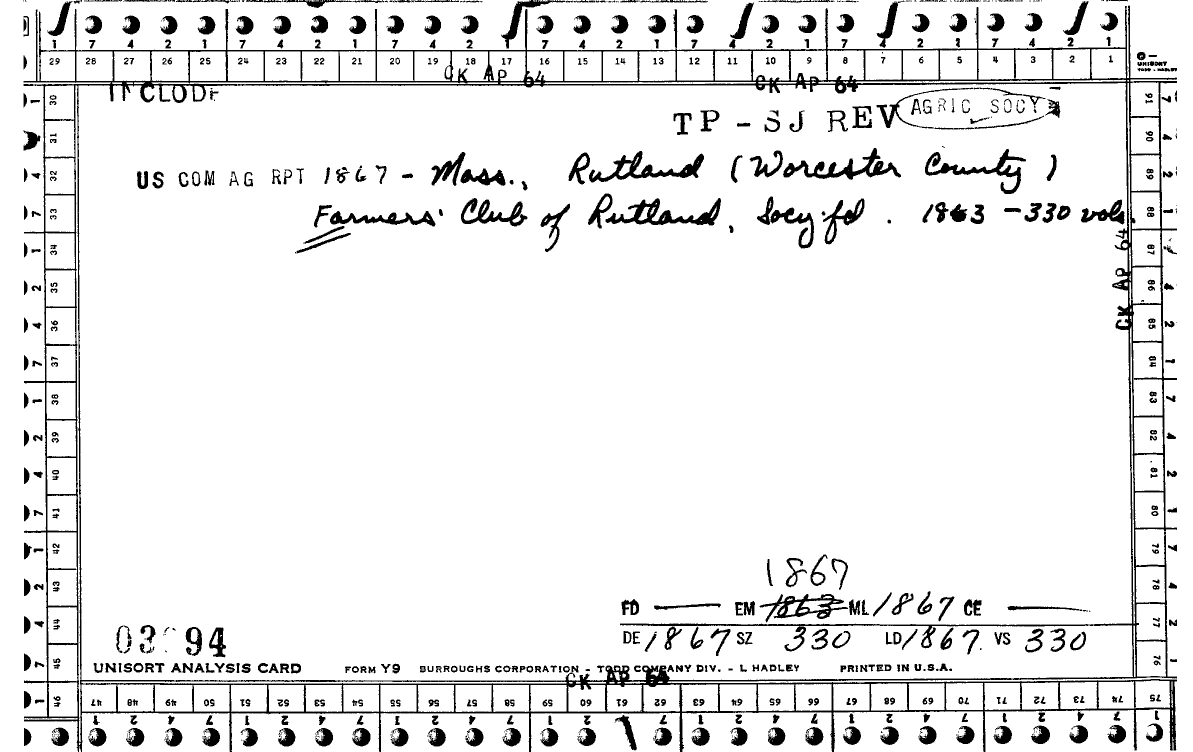 1 7 4 2 1 7 4 2 1 7 4 2 1 7 4 2 1 7 4 2 1 7 4 2 1 7 4 2 1
29 28 27 26 25 24 23 22 21 20 19 18 17 16 15 14 13 12 11 10 9 8 7 6 5 4 3 2 1
CK AP 64 CK AP 64
UNISORT
TODD - HADLEY
INCLUDE
TP - SJ REV AGRIC SOCY
US COM AG RPT 1867 - Mass., Rutland (Worcester County)
Farmers' Club of Rutland, Socy. fd. 1863 - 330 vols.
CK AP 64
1867
FD — EM 1863 ML 1867 CE —
DE 1867 SZ 330 LD 1867. VS 330
94
UNISORT ANALYSIS CARD FORM Y9 BURROUGHS CORPORATION - TODD COMPANY DIV. - L HADLEY PRINTED IN U.S.A.
CK AP 64
30 31 32 33 34 35 36 37 38 39 40 41 42 43 44 45 46
47 48 49 50 51 52 53 54 55 56 57 58 59 60 61 62 63 64 65 66 67 68 69 70 71 72 73 74 75
76 77 78 79 80 81 82 83 84 85 86 87 88 89 90 91